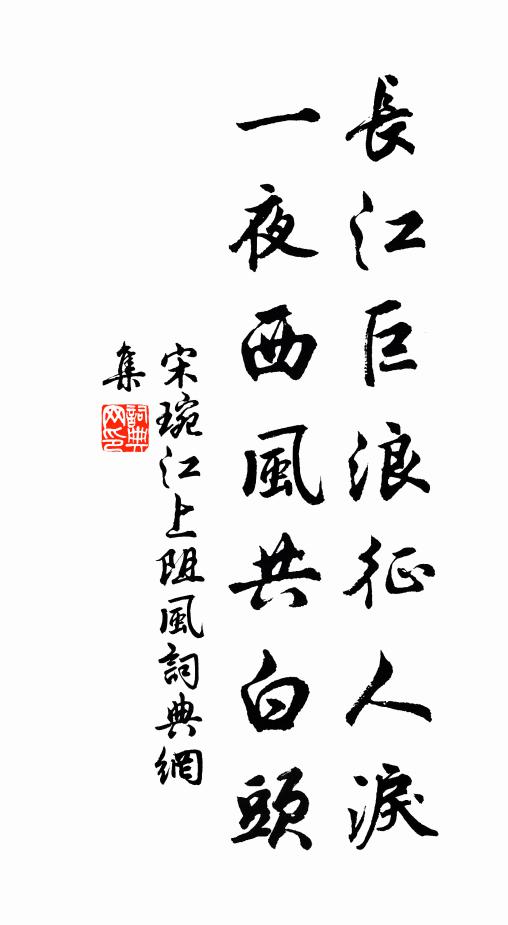 長江巨浪征人淚
一夜西風共白頭
宋琬江上阻風詞典網
集
詞典網印